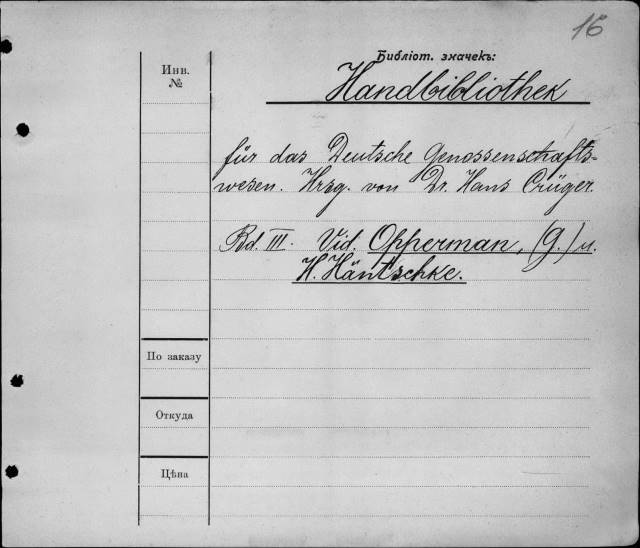 16
Библіот. значекъ:
Инв.
№
Handbibliothek
für das Deutsche Genossenschafts-
wesen. Hrsg. von Dr. Hans Crüger.
Bd. III. Vid. Opperman, (G.) u.
H. Häntschke.
По заказу
Откуда
Цѣна